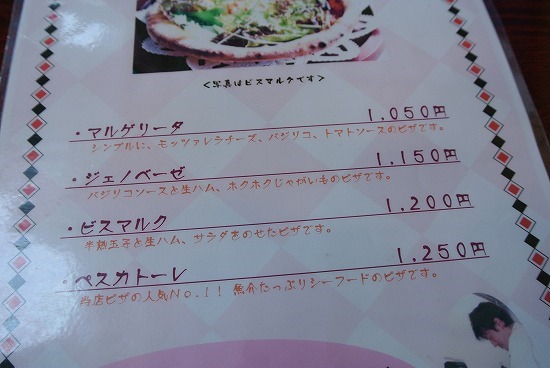 <写真はビスマルクです>
・マルゲリータ 1,050円
シンプルに、モッツァレラチーズ、バジリコ、トマトソースのピザです。
・ジェノベーゼ 1,150円
バジリコソースと生ハム、ホクホクじゃがいものピザです。
・ビスマルク 1,200円
半熟玉子と生ハム、サラダをのせたピザです。
・ペスカトーレ 1,250円
当店ピザの人気No.1！魚介たっぷりシーフードのピザです。